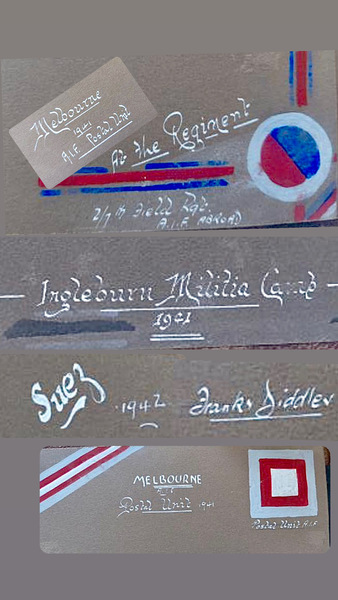 Melbourne
1941
A.I.F. Postal Unit
At the Regiment
2/7th Field Rgt.
A.I.F. ABROAD
Ingleburn Militia Camp
1941
Suez 1942 Franks Diddley
MELBOURNE
A.I.F.
Postal Unit 1941
Postal Unit A.I.F.